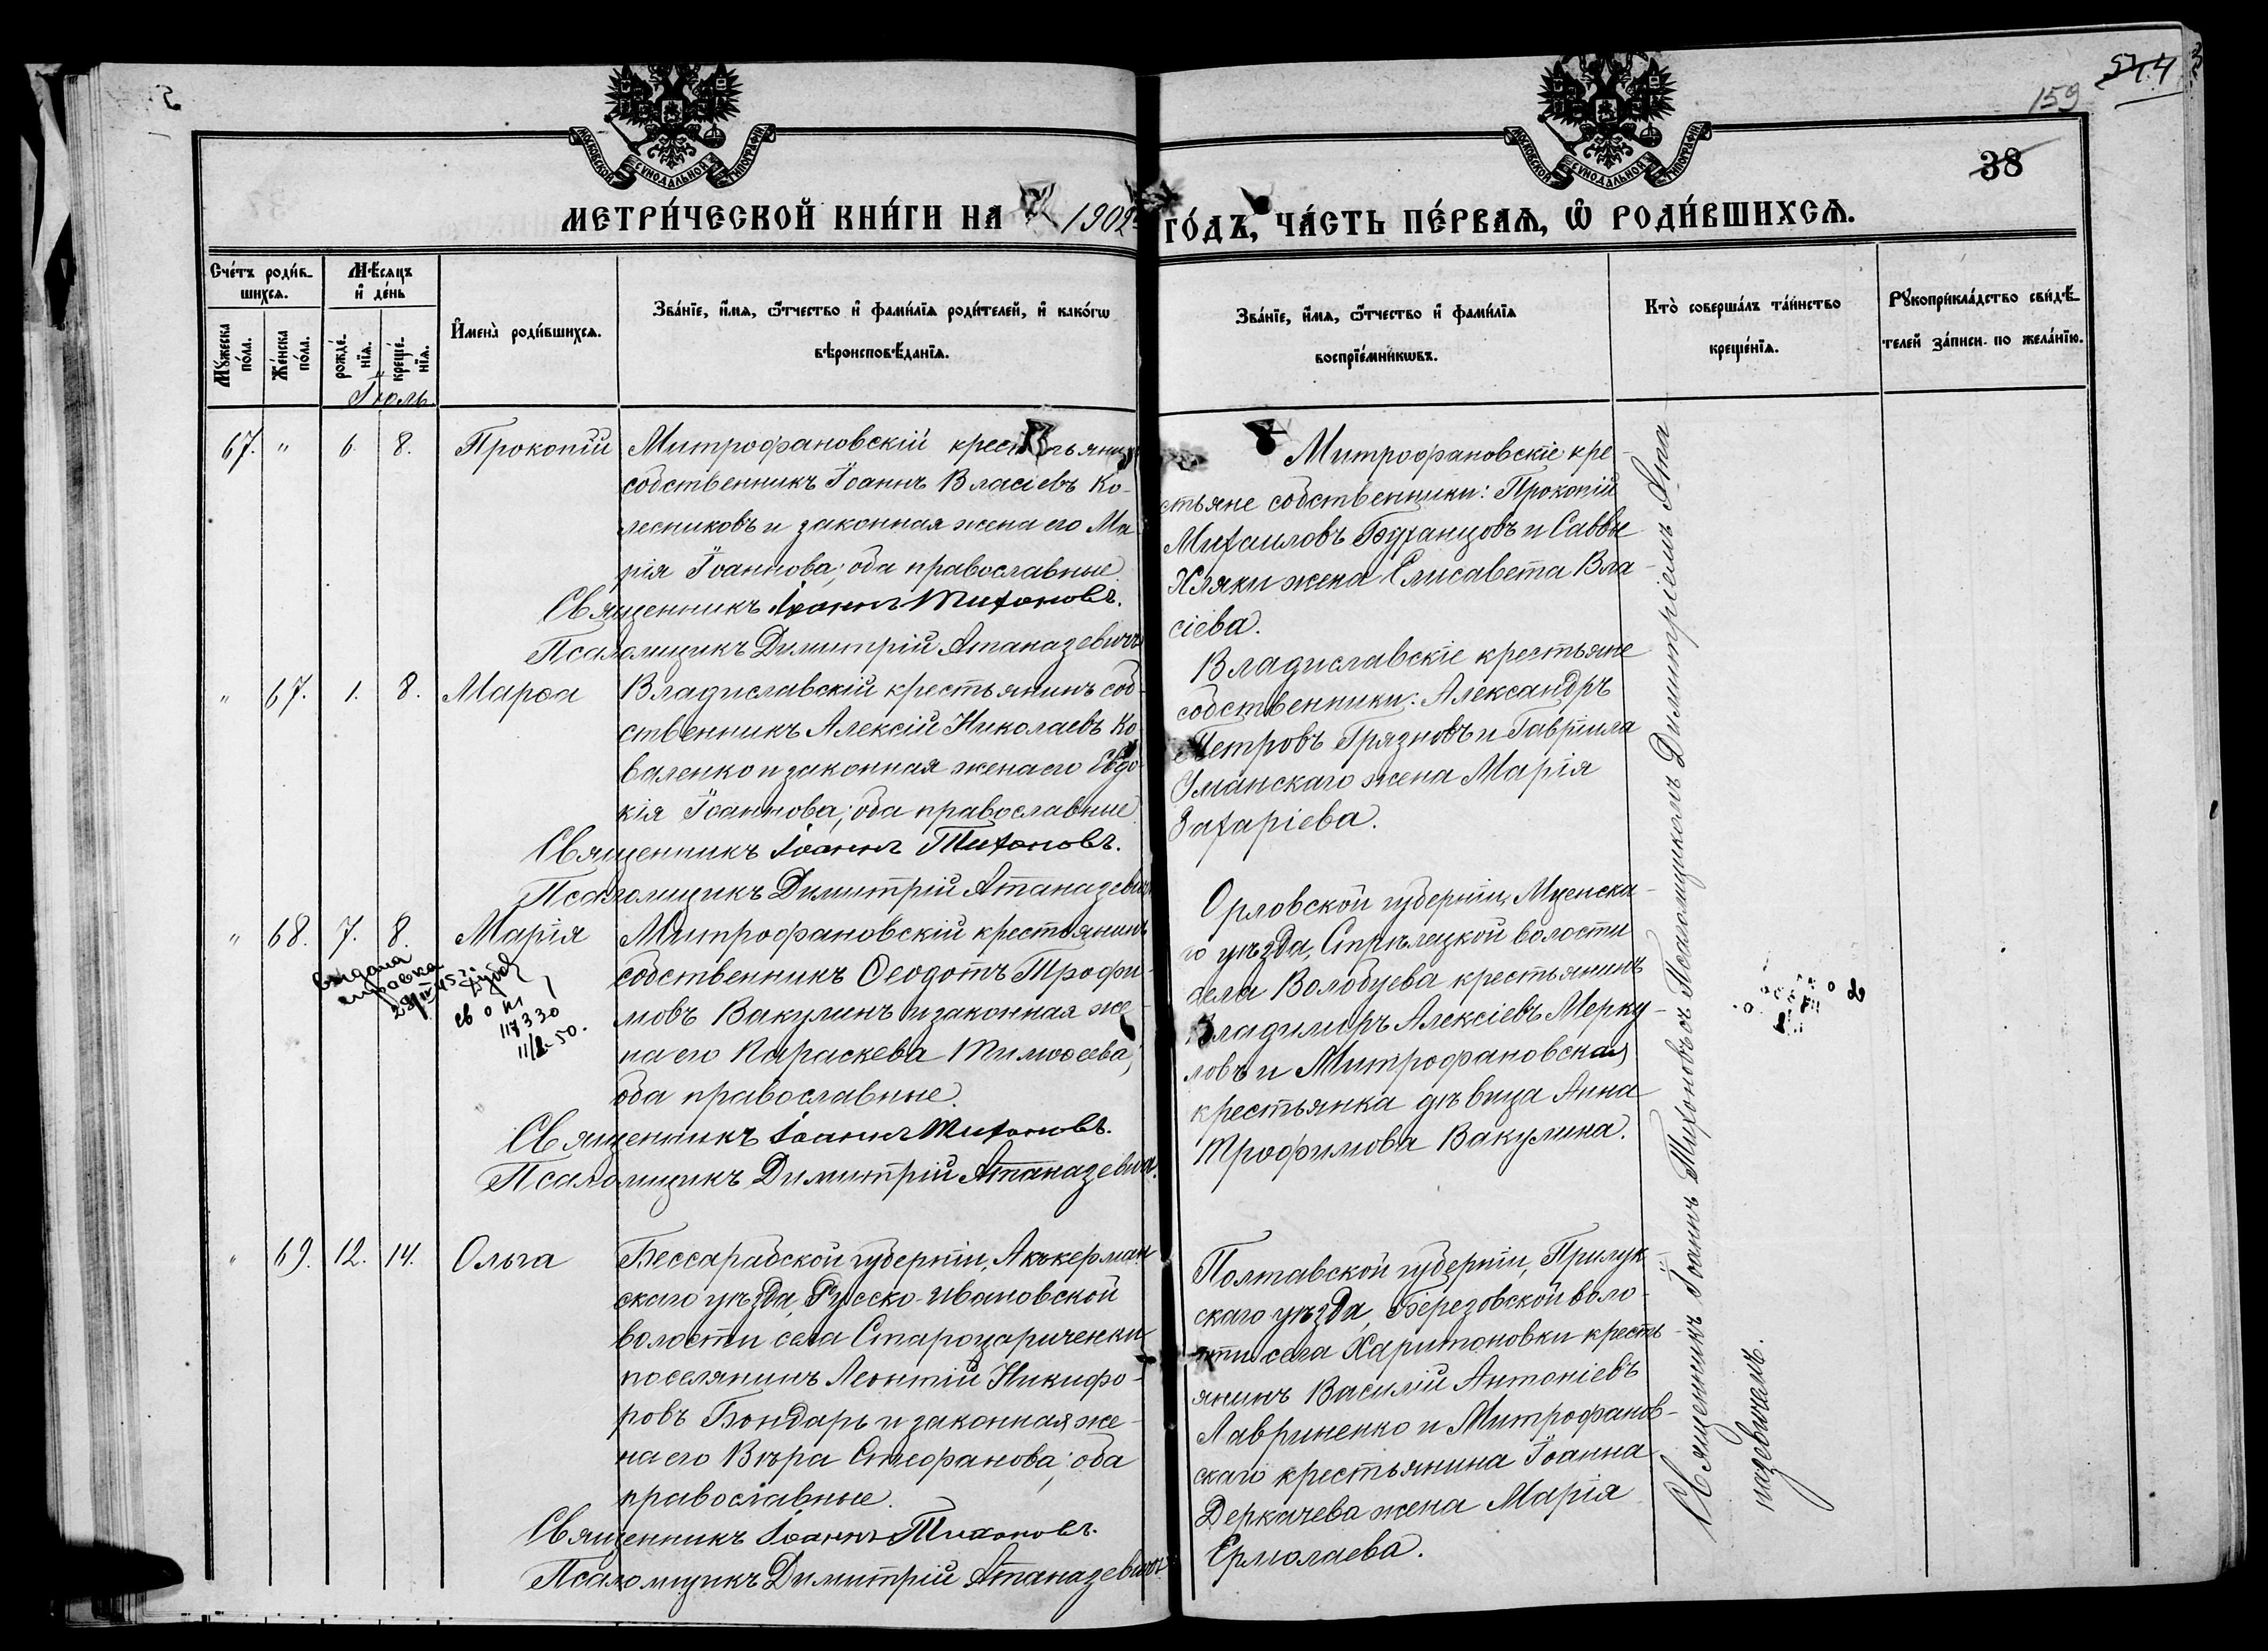 544
159
38
МОСКОВСКОЙ СѴНОДАЛЬНОЙ ТИПОГРАФІИ
МОСКОВСКОЙ СѴНОДАЛЬНОЙ ТИПОГРАФІИ
МЕТРИ́ЧЕСКОЙ КНИ́ГИ НА 1902 ГО́ДЪ, ЧА́СТЬ ПЕ́РВАѦ, Ѡ РОДИ́ВШИХСѦ.
Сче́тъ роди́в-
шихсѧ.
Мѣ́сѧцъ
и҆ де́нь
Мꙋ́жеска
по́ла.
Же́нска
по́ла.
рожде́-
нїѧ.
креще́-
нїѧ.
И҆мена̀ роди́вшихсѧ.
Зва́нїе, и҆́мѧ, ѻ҆́тчество и҆ фами́лїѧ роди́телей, и҆ како́гѡ
вѣроисповѣ́данїѧ.
Зва́нїе, и҆́мѧ, ѻ҆́тчество и҆ фами́лїѧ
воспрїе́мникѡвъ.
Кто̀ соверша́лъ та́инство
креще́нїѧ.
Рꙋкоприкла́дство свидѣ́-
телей за́писи по жела́нїю.
Іюль.
67. " 6. 8. Прокопій
Митрофановскій крестьянинъ
собственникъ Іоаннъ Власіевъ Ко-
лесниковъ и законная жена его Ма-
рія Іоаннова; оба православные.
Священникъ Іоаннъ Тихоновъ.
Псаломщикъ Димитрій Атаназевичъ
Митрофановскіе кре-
стьяне собственники: Прокопій
Михаиловъ Буханцовъ и Саввы
Хляки жена Елисавета Вла-
сіева.
" 67. 1. 8. Марѳа
Владиславскій крестьянинъ соб-
ственникъ Алексій Николаевъ Ко-
валенко и законная жена его Евдо-
кія Іоаннова; оба православные.
Священникъ Іоаннъ Тихоновъ.
Псаломщикъ Димитрій Атаназевичъ
Владиславскіе крестьяне
собственники: Александръ
Петровъ Грязновъ и Гавріила
Уманскаго жена Марія
Захаріева.
" 68. 7. 8. Марія
выдана
справка
св о
117330
11/2-50.
Митрофановскій крестьянинъ
собственникъ Ѳеодотъ Трофи-
мовъ Вакулинъ и законная же-
на его Параскева Тимоѳеева;
оба православные.
Священникъ Іоаннъ Тихоновъ.
Псаломщикъ Димитрій Атаназевичъ.
Орловской губерніи, Мценска-
го уѣзда, Стрѣлецкой волости
села Волобуева крестьянинъ
Владимиръ Алексіевъ Мерку-
ловъ и Митрофановская
крестьянка дѣвица Анна
Трофимова Вакулина.
" 69. 12. 14. Ольга
Бессарабской губерніи, Аккерман-
скаго уѣзда, Русско-Ивановской
волости села Староцариченки
поселянинъ Леонтій Никифо-
ровъ Бондарь и законная же-
на его Вѣра Стефанова; оба
православные.
Священникъ Іоаннъ Тихоновъ.
Псаломщикъ Димитрій Атаназевичъ
Полтавской губерніи, Прилук-
скаго уѣзда, Березовской воло-
сти села Харитоновки кресть-
янинъ Василій Антоніевъ
Лавриненко и Митрофанов-
скаго крестьянина Іоанна
Деркачева жена Марія
Ермолаева.
Священникъ Іоаннъ Тихоновъ съ Псаломщикомъ Димитріемъ Ата-
назевичемъ.